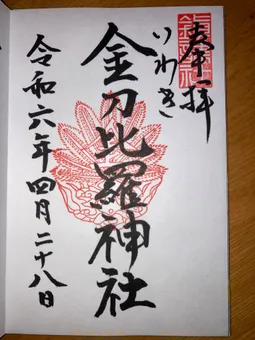 奉拝
いわき
金刀比羅神社
令和六年四月二十八日